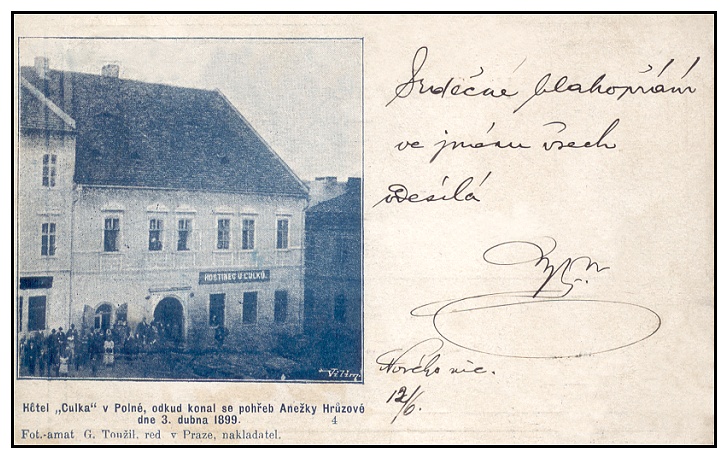 HOSTINEC U CULKŮ.
Vilím
Hôtel „Culka“ v Polné, odkud konal se pohřeb Anežky Hrůzové
dne 3. dubna 1899.
4
Fot.-amat G. Toužil, red v Praze, nakladatel.
Srdečné blahopřání
ve jménu všech
odesílá
12/6.